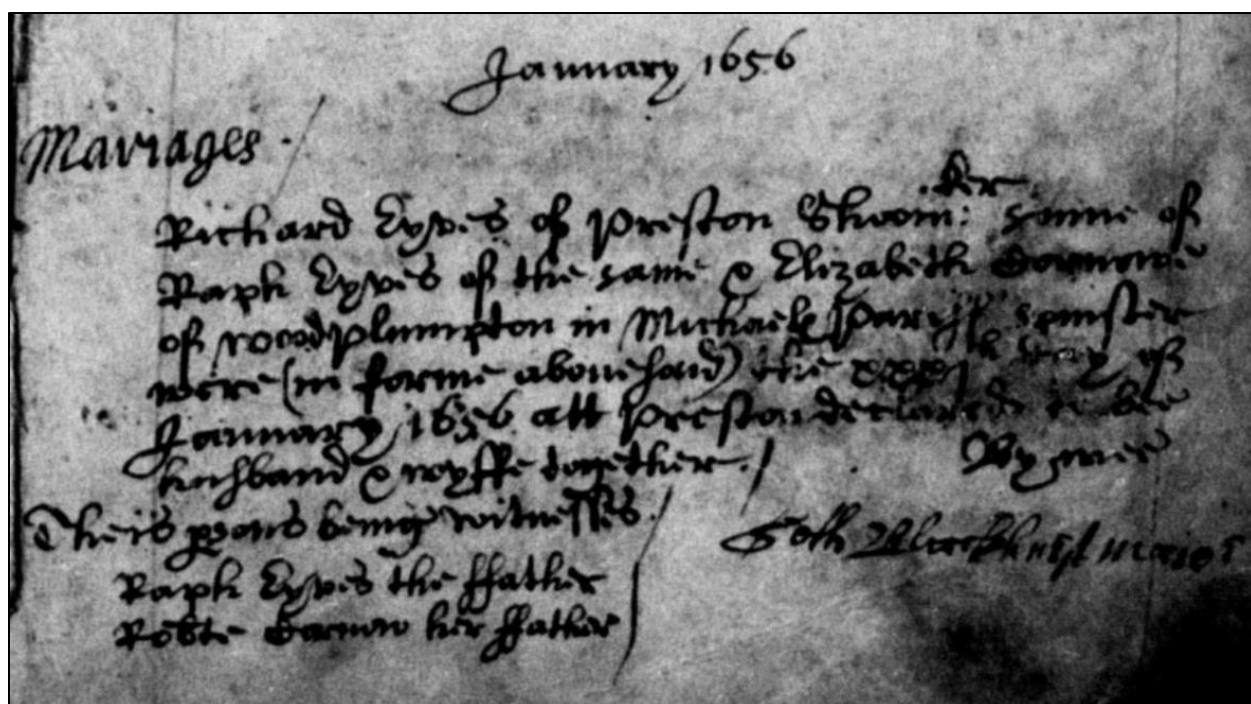 January 1656
Mariages.
ker
Richard Eyves of Preston Shoom: sonne of
Raph Eyves of the same & Elizabeth
of woodplumpton in Michaels Parish spinster
were (in forme abovesaid) the xxxjth day of
January 1656 att Preston declared to bee
husband & wyffe together./ By mee
Theis psons being witnesses.
Raph Eyves the ffather
Robte her ffather